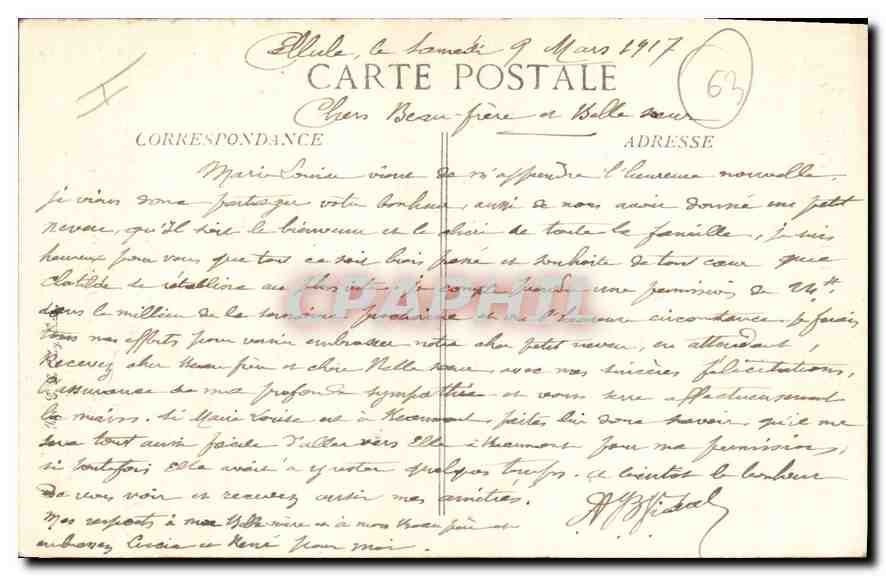 le Samedi 9 Mars 1917
CARTE POSTALE
63
Chers Beau-frère et Belle sœur
CORRESPONDANCE
ADRESSE
Marie Louise vient de m'apprendre l'heureuse nouvelle,
je viens donc partager votre bonheur, aussi de nous avoir donné un petit
neveu, qu'Il soit le bienvenu et le choix de toute la famille, je suis
heureux pour vous que tout ce soit bien passé et souhaite de tout cœur que
Clotilde se rétablisse au plus vite. je compte prendre une permission de 24 h.
dans le millieu de la semaine prochaine et en l'heureuse circonstance, je ferais
tous mes efforts pour venir embrasser notre cher petit neveu, en attendant,
Recevez cher Beau frère et chère Belle sœur, avec mes sincères félicitations,
l'assurance de ma profonde sympathie et vous serre affectueusement
les mains. Si Marie Louise est à faites lui donc savoir qu'il me
sera tout aussi facile d'aller vers Elle à pour ma permission,
si toutefois Elle avait à y rester quelques temps. à bientôt le bonheur
de vous voir et recevez aussi mes amitiés.
Mes respects à ma Belle mère et à mon Beau père et
embrassez et René pour moi.
CPAPHIL